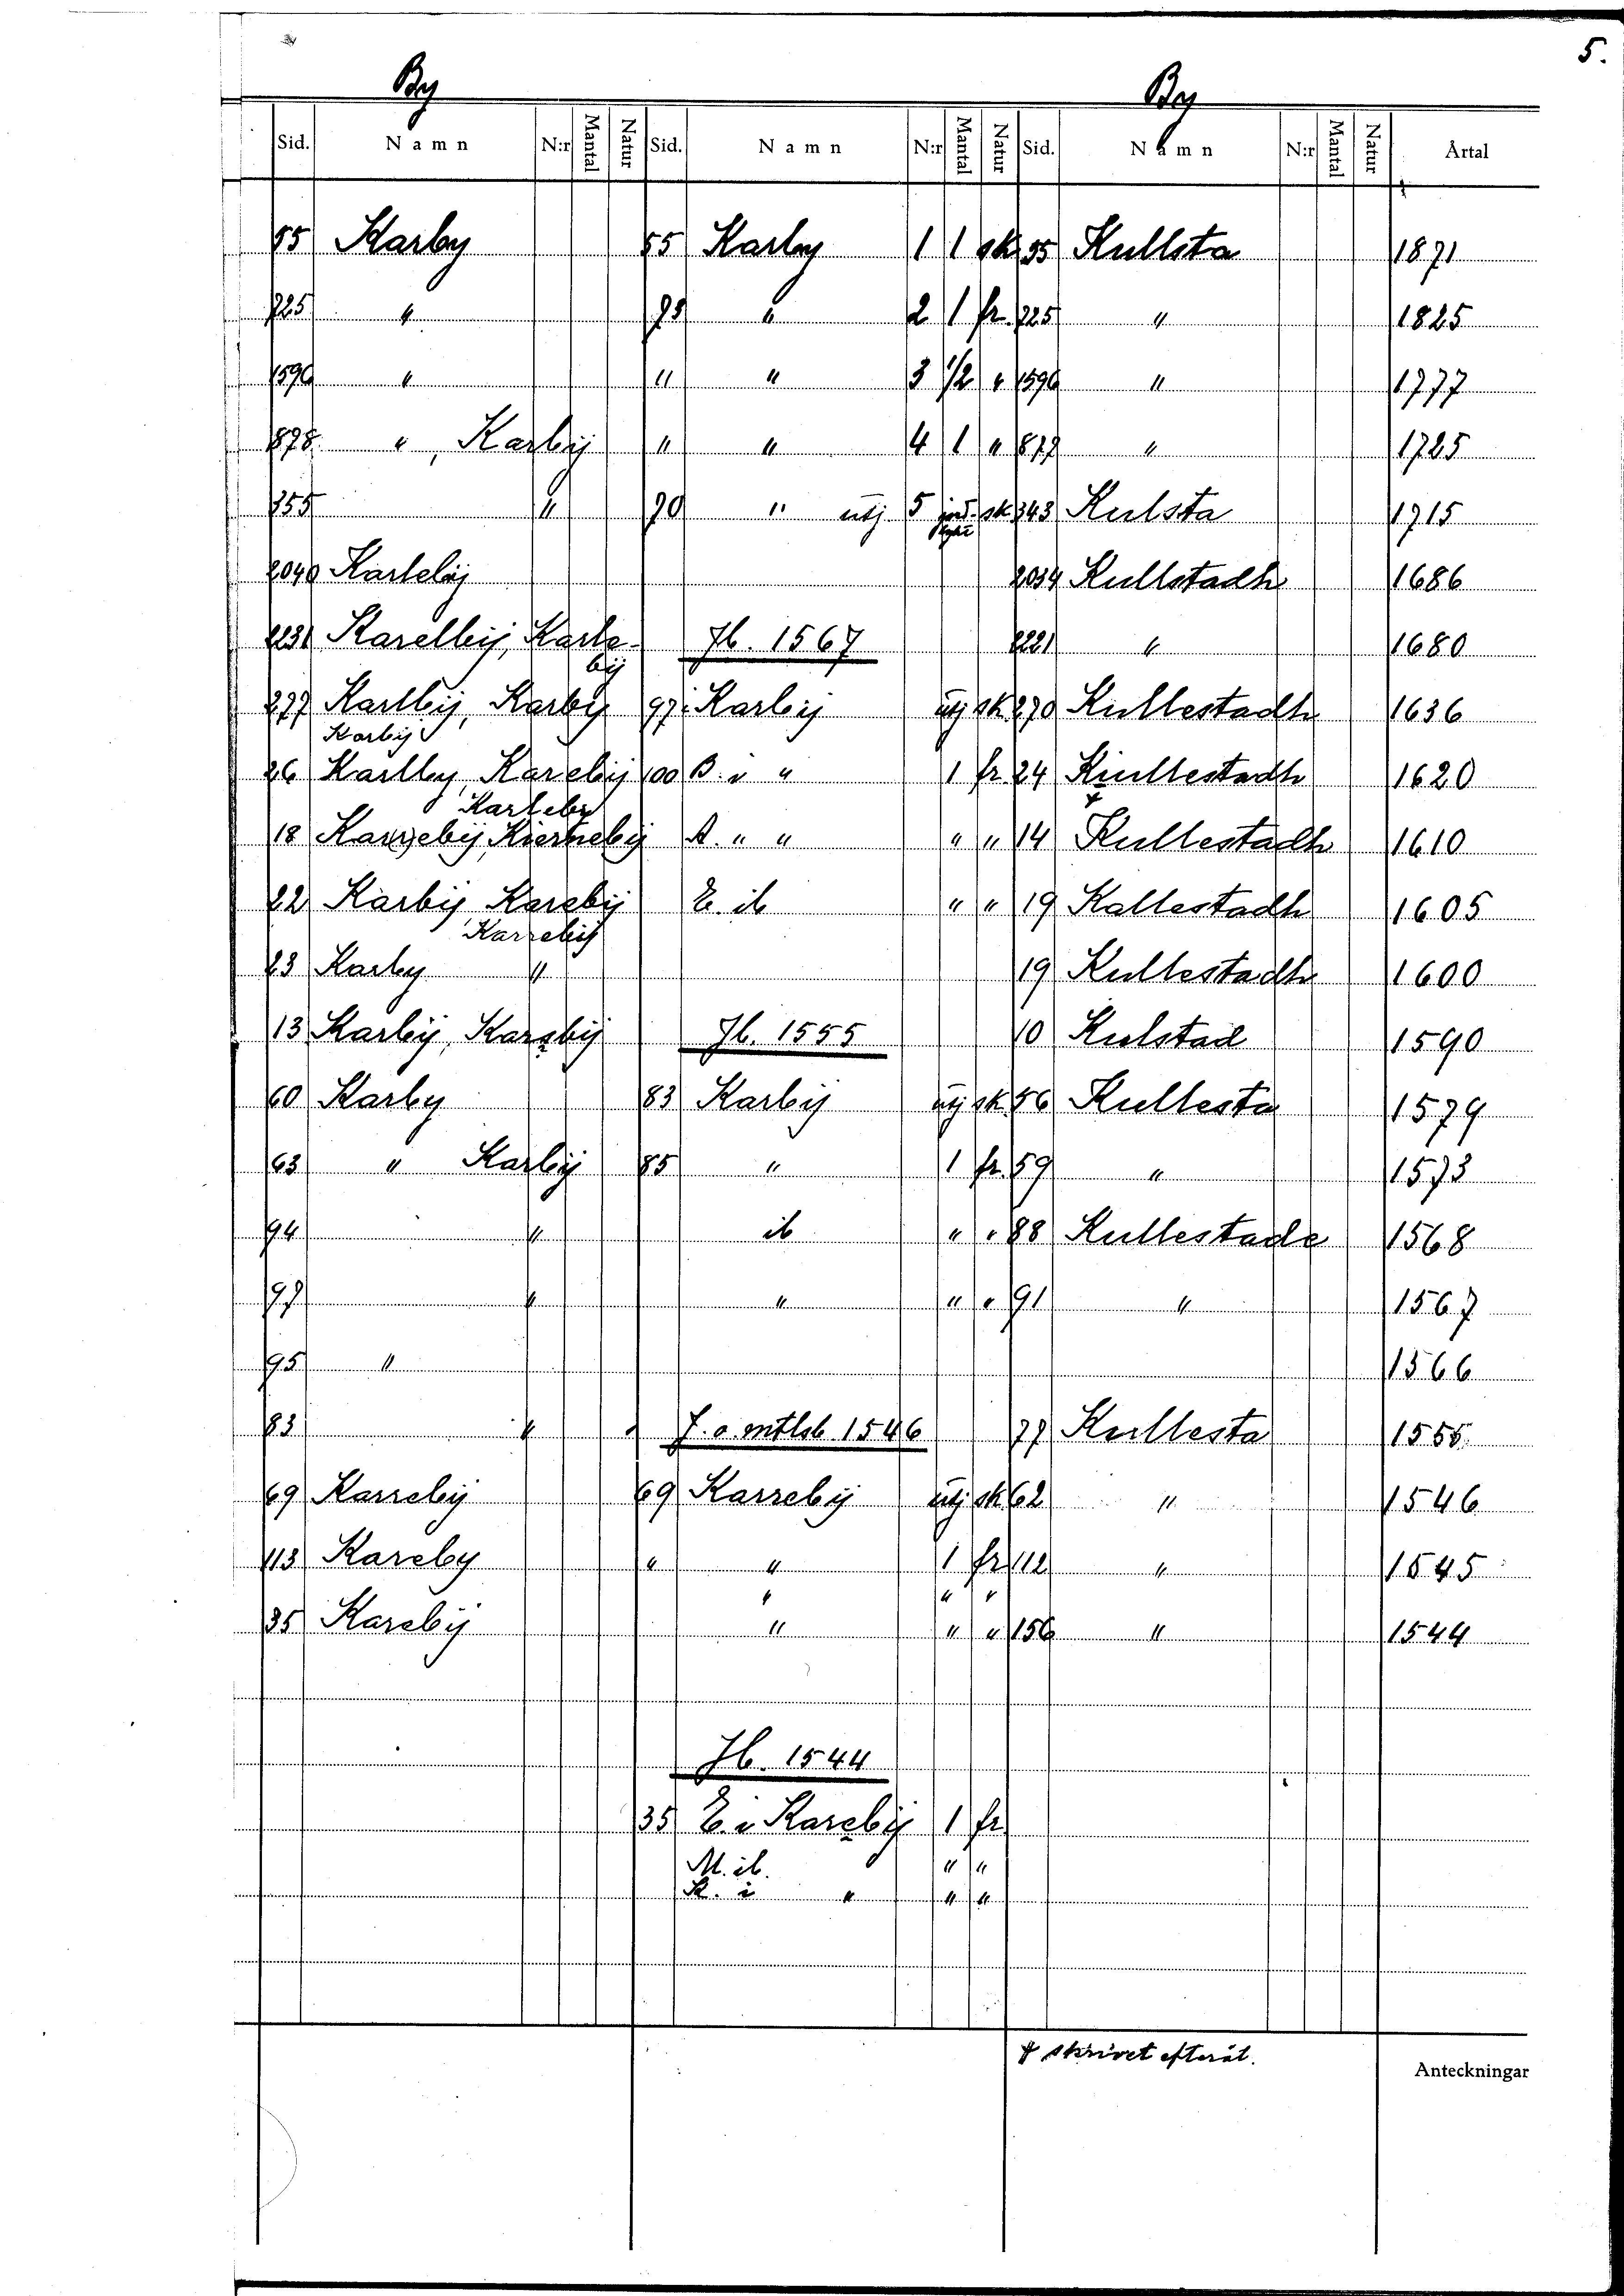 5.
By By
Sid. Namn N:r Mantal Natur Sid. Namn N:r Mantal Natur Sid. Namn N:r Mantal Natur Årtal
55 Karby 55 Karby 1 1 sk 55 Kullsta 1871
225 " 75 " 2 1 fr. 225 " 1825
1590 " " " 3 1/2 " 1590 " 1777
878 " , Karbij " " 4 1 " 877 " 1725
355 " 70 " utj 5 sk 343 Kulsta 1715
2040 Karlebij 2034 Kullstadh 1686
2231 Karelbij, Karle- Jb. 1567 2221 " 1680
bij
277 Karlbij, Karby 97 Karbij utj sk 270 Kullestadh 1636
Karbij
26 Karlby, Karebij 100 B. i " 1 fr. 24 Kullestadh 1620
Karleby +
18 Karrebij, A. " " " " 14 Kullestadh 1610
22 Karbij, Karebij E. ib " " 19 Kallestadh 1605
Karrebij
23 Karby " 19 Kullestadh 1600
13 Karbij, Karebij Jb. 1555 10 Kulstad 1590
60 Karby 83 Karbij utj sk 56 Kullesta 1579
63 " Karbij 85 " 1 fr. 59 " 1573
94 " ib " " 88 Kullestade 1568
97 " " " " 91 " 1567
95 " 1566
83 " J. o. mtlsb 1546 77 Kullesta 1555
69 Karrebij 69 Karrebij utj sk 62 " 1546
113 Kareby " " 1 fr 112 " 1545
" " "
35 Karebij " " " 156 " 1544
Jb. 1544
35 E. i Karebij 1 fr
M. ib. " "
K. i " " "
+ skrivet efteråt.
Anteckningar